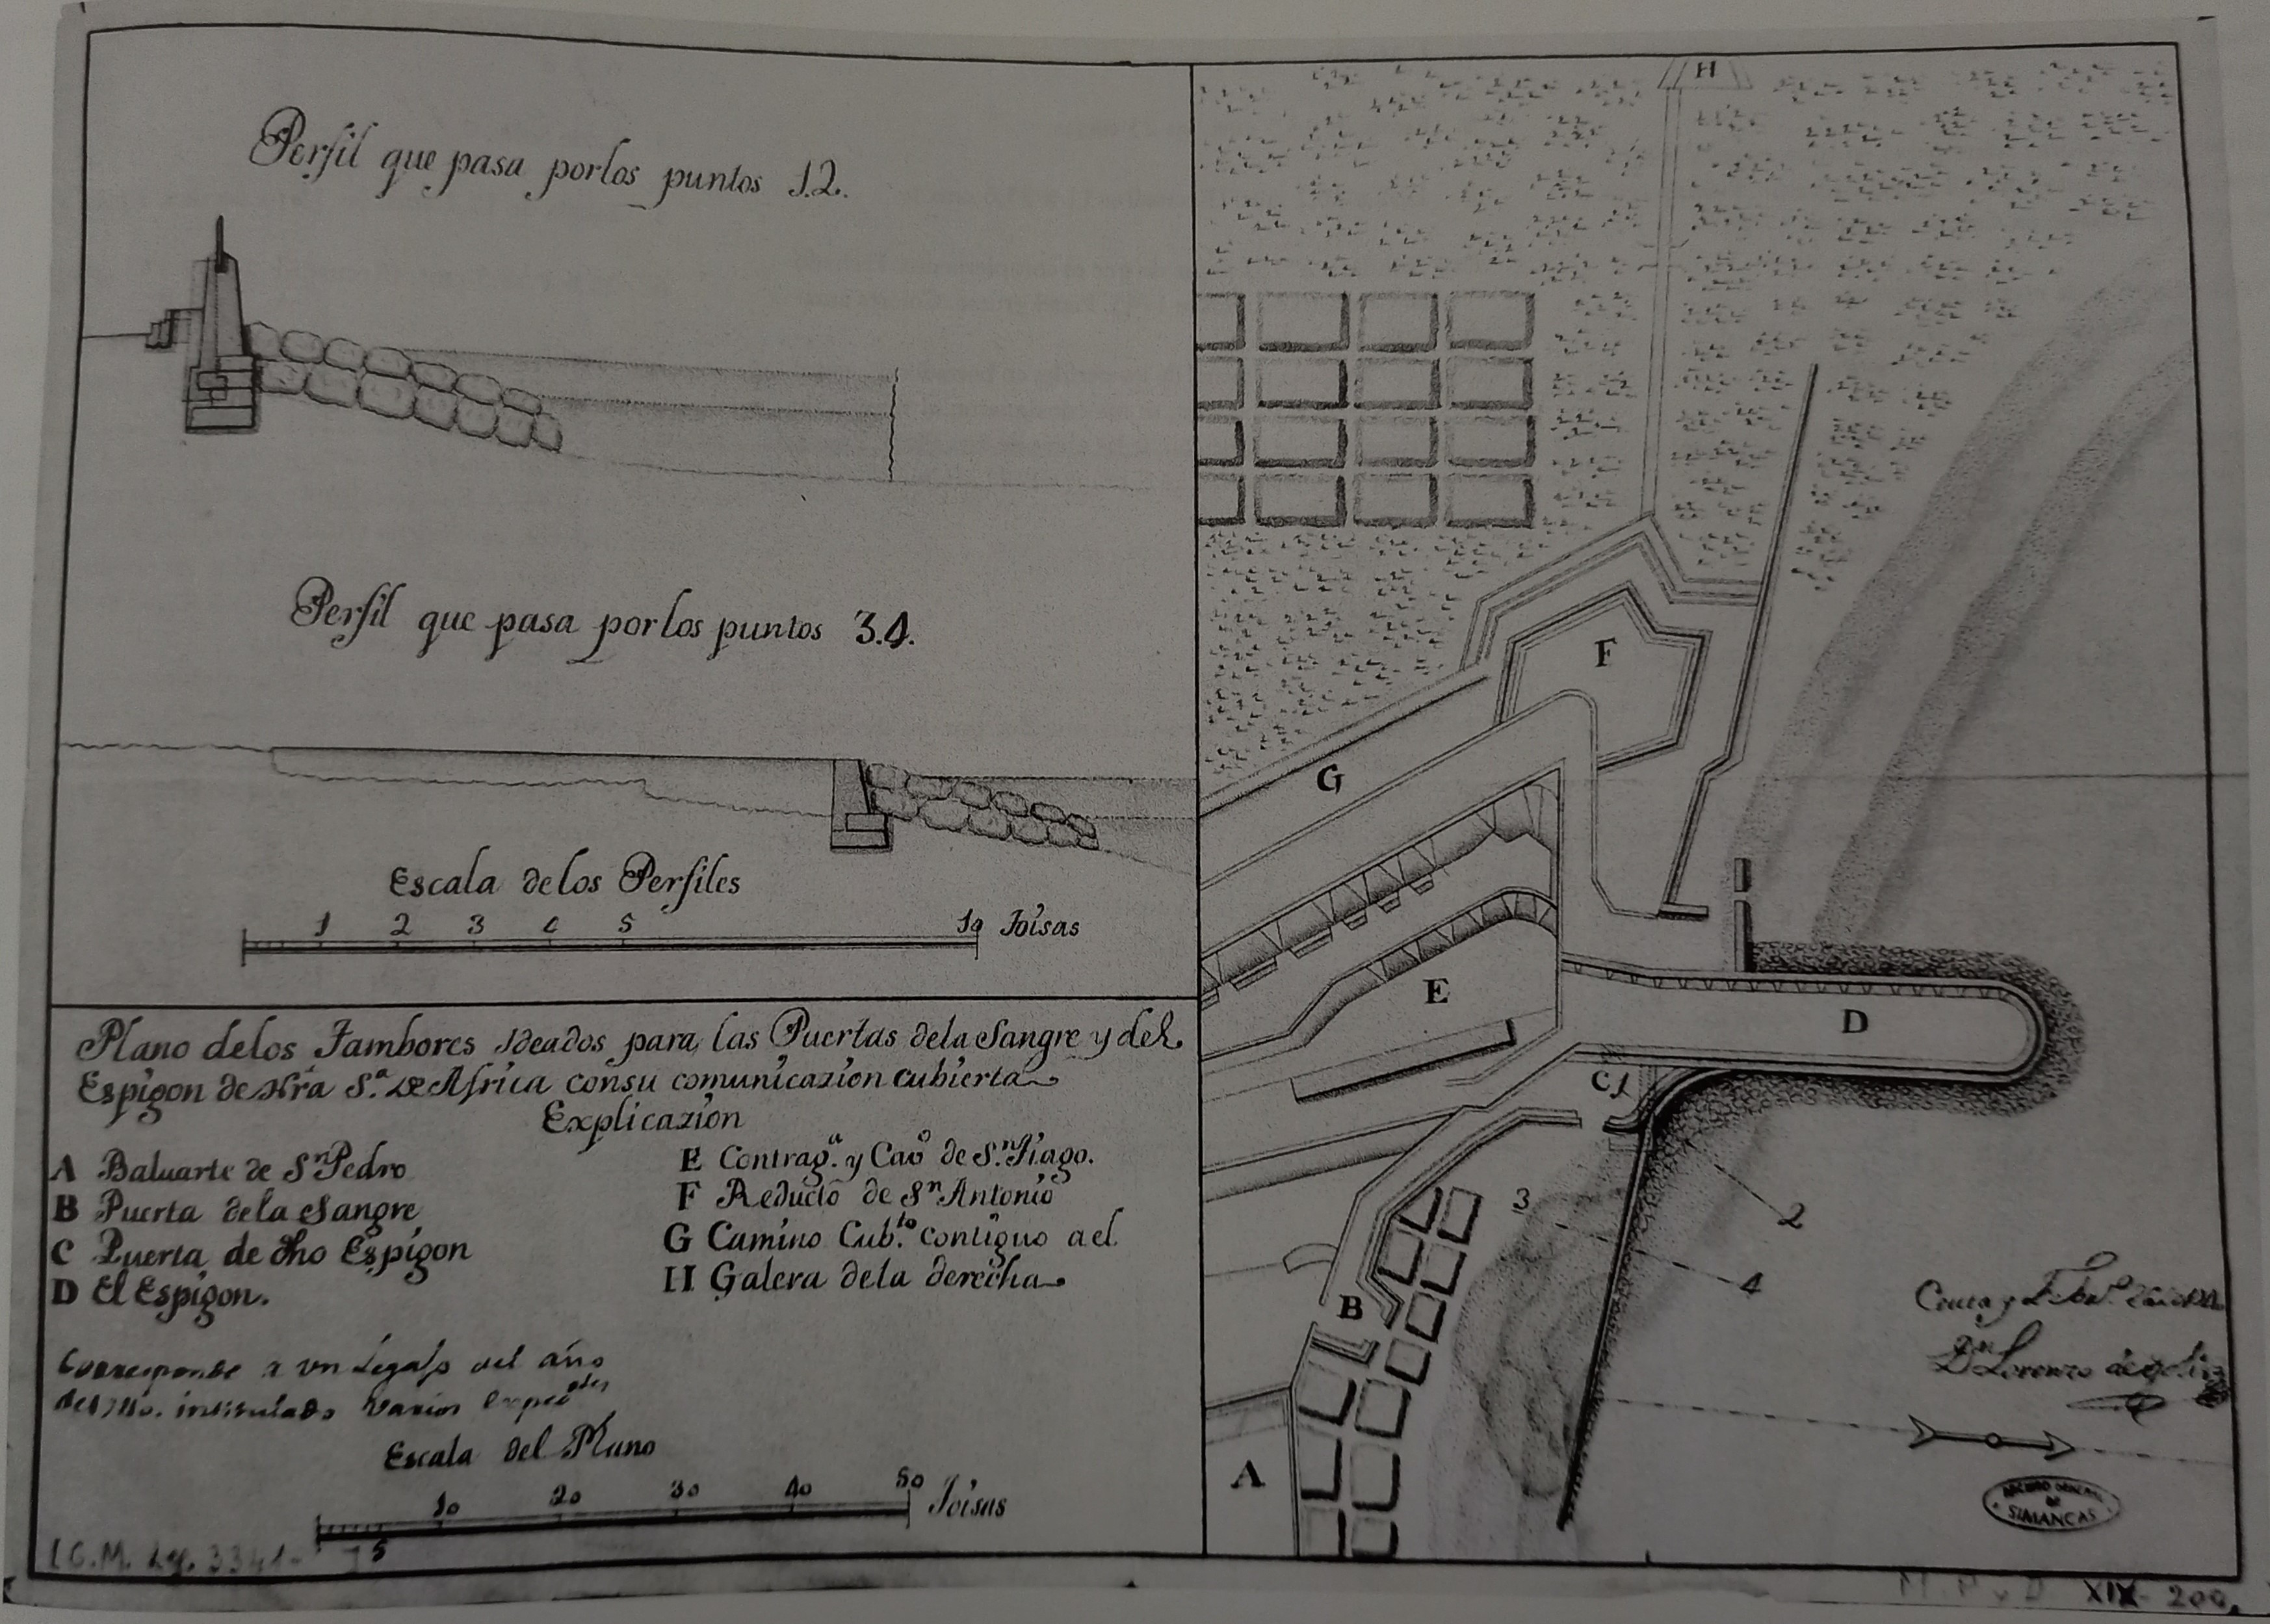 Perfil que pasa por los puntos 1.2.
Perfil que pasa por los puntos 3.4.
Escala de los Perfiles
1 2 3 4 5 10 Toisas
Plano de los Tambores Ideados para las Puertas de la Sangre y del
Espigon de Nra Sª. de Africa con su comunicazion cubierta
Explicazion
A Baluarte de Sn Pedro
B Puerta de la Sangre
C Puerta de dho Espigon
D El Espigon.
E Contragª. y Cavº de Sn. Tiago.
F Reducto de Sn Antonio
G Camino Cubto. contiguo a el
H Galera de la derecha
Corresponde a un Legajo del año
intitulado varios
Escala del Plano
5 10 20 30 40 50 Toisas
H
F
G
E
D
C 1
2
3
4
B
A
Ceuta y
Dn Lorenzo de
ARCHIVO GENERAL
DE
SIMANCAS
G.M. Lg. 3341
M. P. y D. XIX - 200